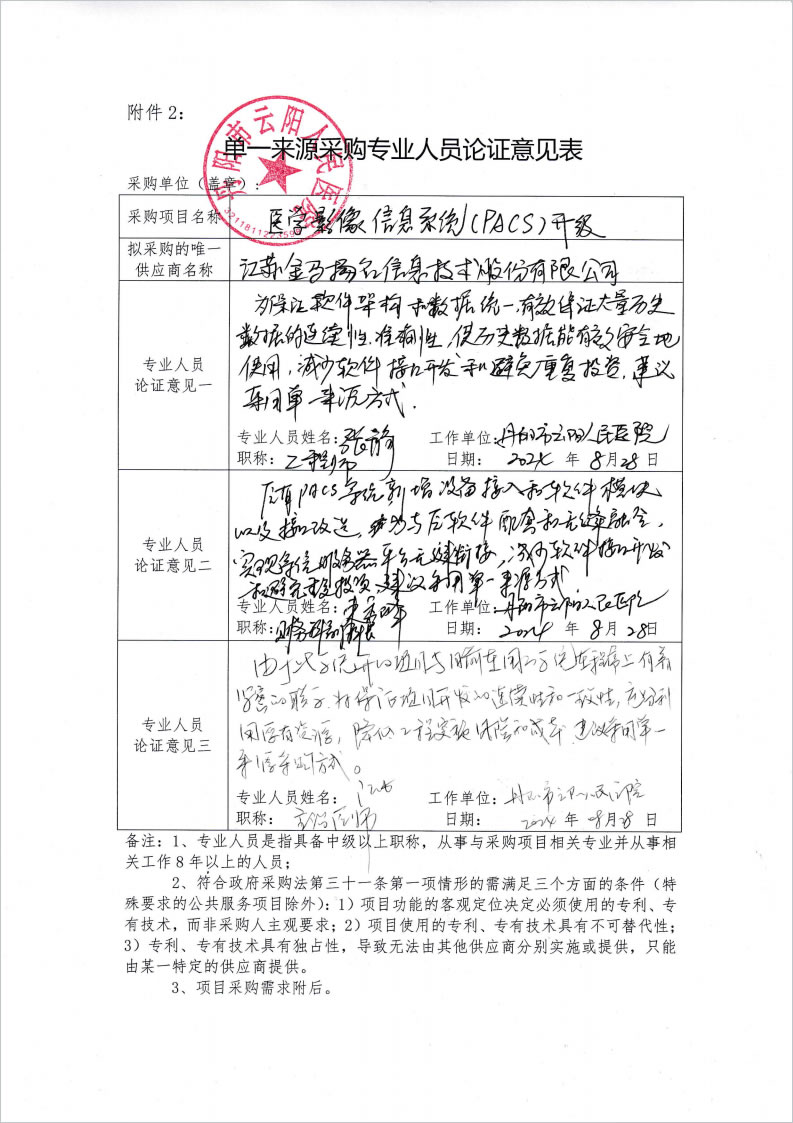 附件2：
丹阳市云阳人民医院
单一来源采购专业人员论证意见表
采购单位（盖章）：
采购项目名称 医学影像信息系统(PACS)升级
拟采购的唯一供应商名称 江苏金马扬名信息技术股份有限公司
专业人员论证意见一
为保证软件架构和数据统一，有效保证大量历史
数据的连续性、准确性，使历史数据能有效安全地
使用，减少软件接口开发和避免重复投资，建议
采用单一来源方式．
专业人员姓名：张静 工作单位：丹阳市云阳人民医院
职称：工程师 日期：2024 年 8月28日
专业人员论证意见二
原有PACS系统新增设备接入和软件模块
以及接口改造，为与原软件配套和无缝融合，
实现系统服务器平台无缝衔接，减少软件接口开发
和避免重复投资，建议采用单一来源方式
专业人员姓名： 工作单位：丹阳市云阳人民医院
职称：财务科副科长 日期：2024 年 8月28日
专业人员论证意见三
由于此系统升级项目与目前在用的系统在程序上有着
紧密的联系，为保证项目开发的连续性和一致性，充分利
用原有资源，降低工程实施风险和成本，建议采用单一
来源采购方式。
专业人员姓名： 工作单位：丹阳市云阳人民医院
职称：主治医师 日期：2024 年 8月28日
备注：1、专业人员是指具备中级以上职称，从事与采购项目相关专业并从事相
关工作8年以上的人员；
2、符合政府采购法第三十一条第一项情形的需满足三个方面的条件（特
殊要求的公共服务项目除外）：1）项目功能的客观定位决定必须使用的专利、专
有技术，而非采购人主观要求；2）项目使用的专利、专有技术具有不可替代性；
3）专利、专有技术具有独占性，导致无法由其他供应商分别实施或提供，只能
由某一特定的供应商提供。
3、项目采购需求附后。